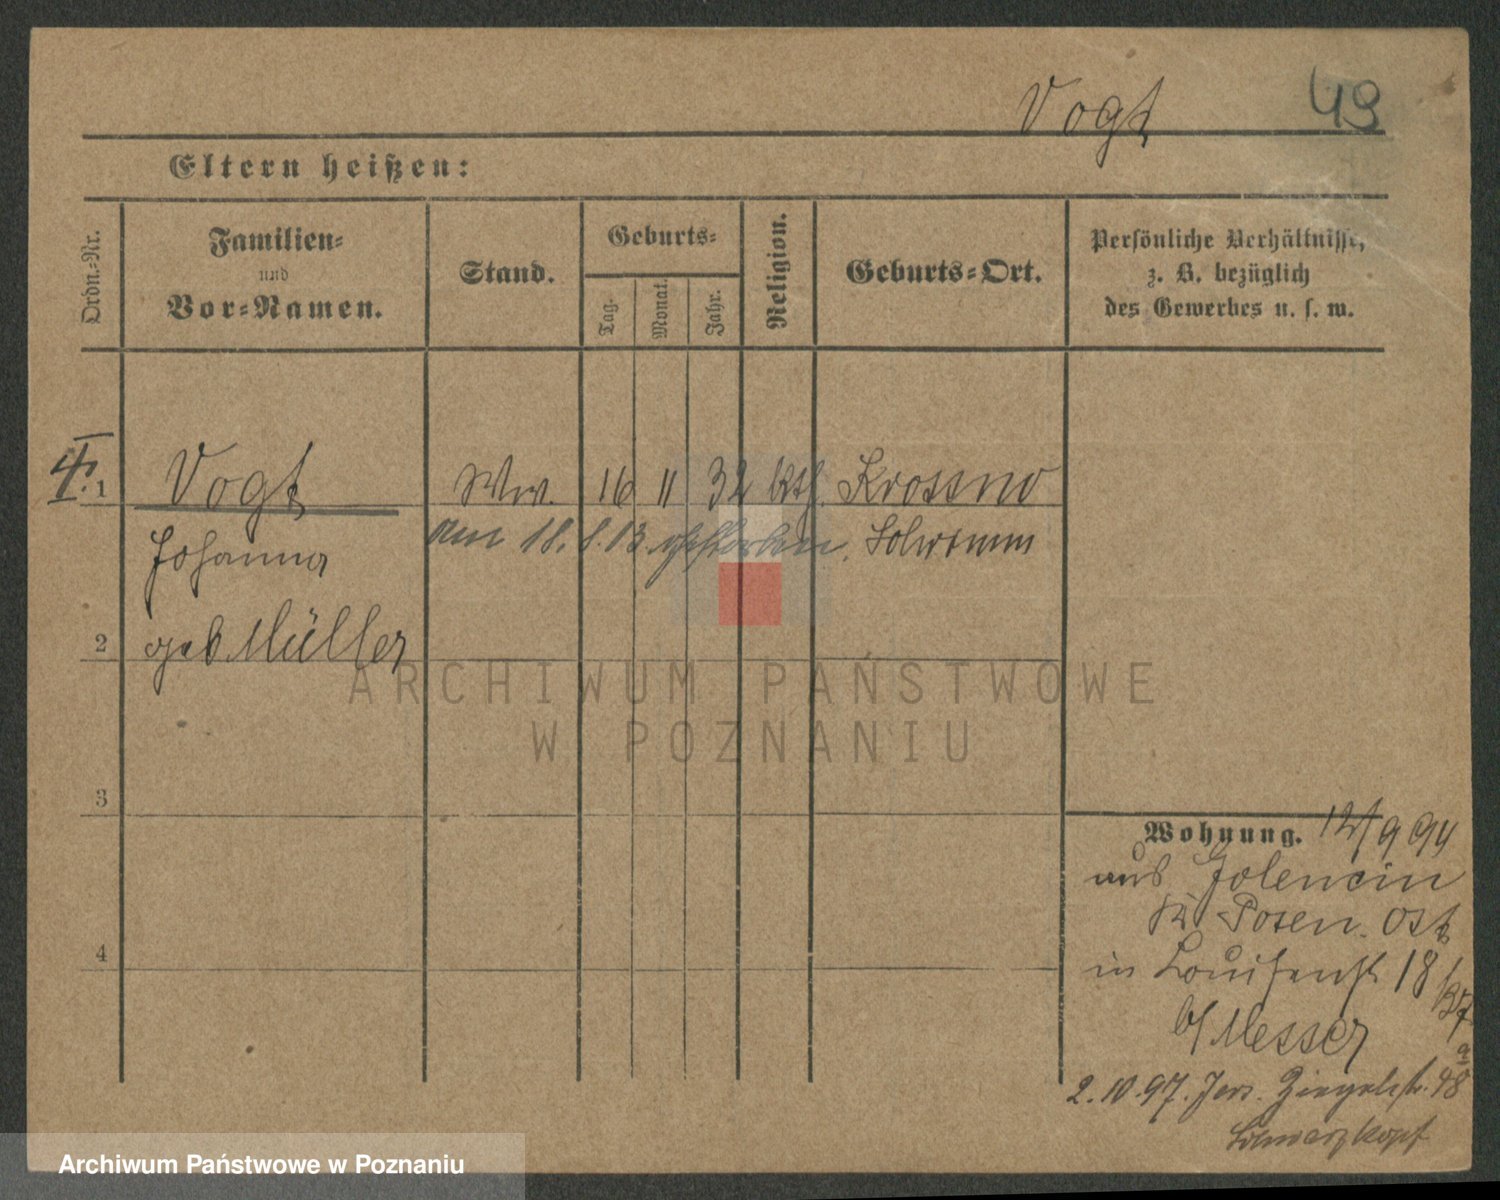 Vogt 49
Eltern heißen:
Ordn.-Nr.
Familien-
und
Vor-Namen.
Stand.
Geburts-
Tag.
Monat.
Jahr.
Religion.
Geburts-Ort.
Persönliche Verhältnisse,
z. B. bezüglich
des Gewerbes u. s. w.
1 Vogt Ww. 16 11 32 kth. Krossno
Johanna am 18. 8. 13. gestorben. Schrimm
2 geb Müller
ARCHIWUM PAŃSTWOWE
W POZNANIU
3
Wohnung. 12/9 94
aus Golencin
Kr Posen. Ost
4
in Louisenst 18
b/ Messer
2.10.97. Jers. Ziegelstr. 48
Schwarzkopf
Archiwum Państwowe w Poznaniu